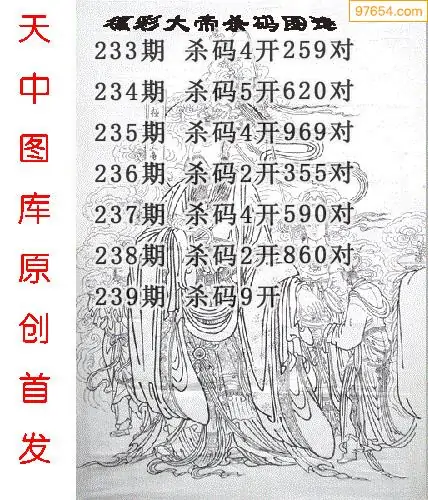 97654.com
福彩大帝杀码图迷
233期 杀码4开259对
234期 杀码5开620对
235期 杀码4开969对
236期 杀码2开355对
237期 杀码4开590对
238期 杀码2开860对
239期 杀码9开
天中图库原创首发